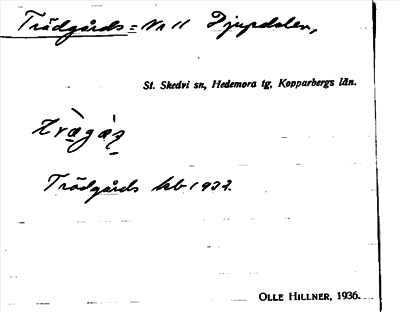 Trädgårds= Nr 11 Djupdalen,
St. Skedvi sn, Hedemora tg, Kopparbergs län.
Trädgårds kb 1933.
OLLE HILLNER, 1936.